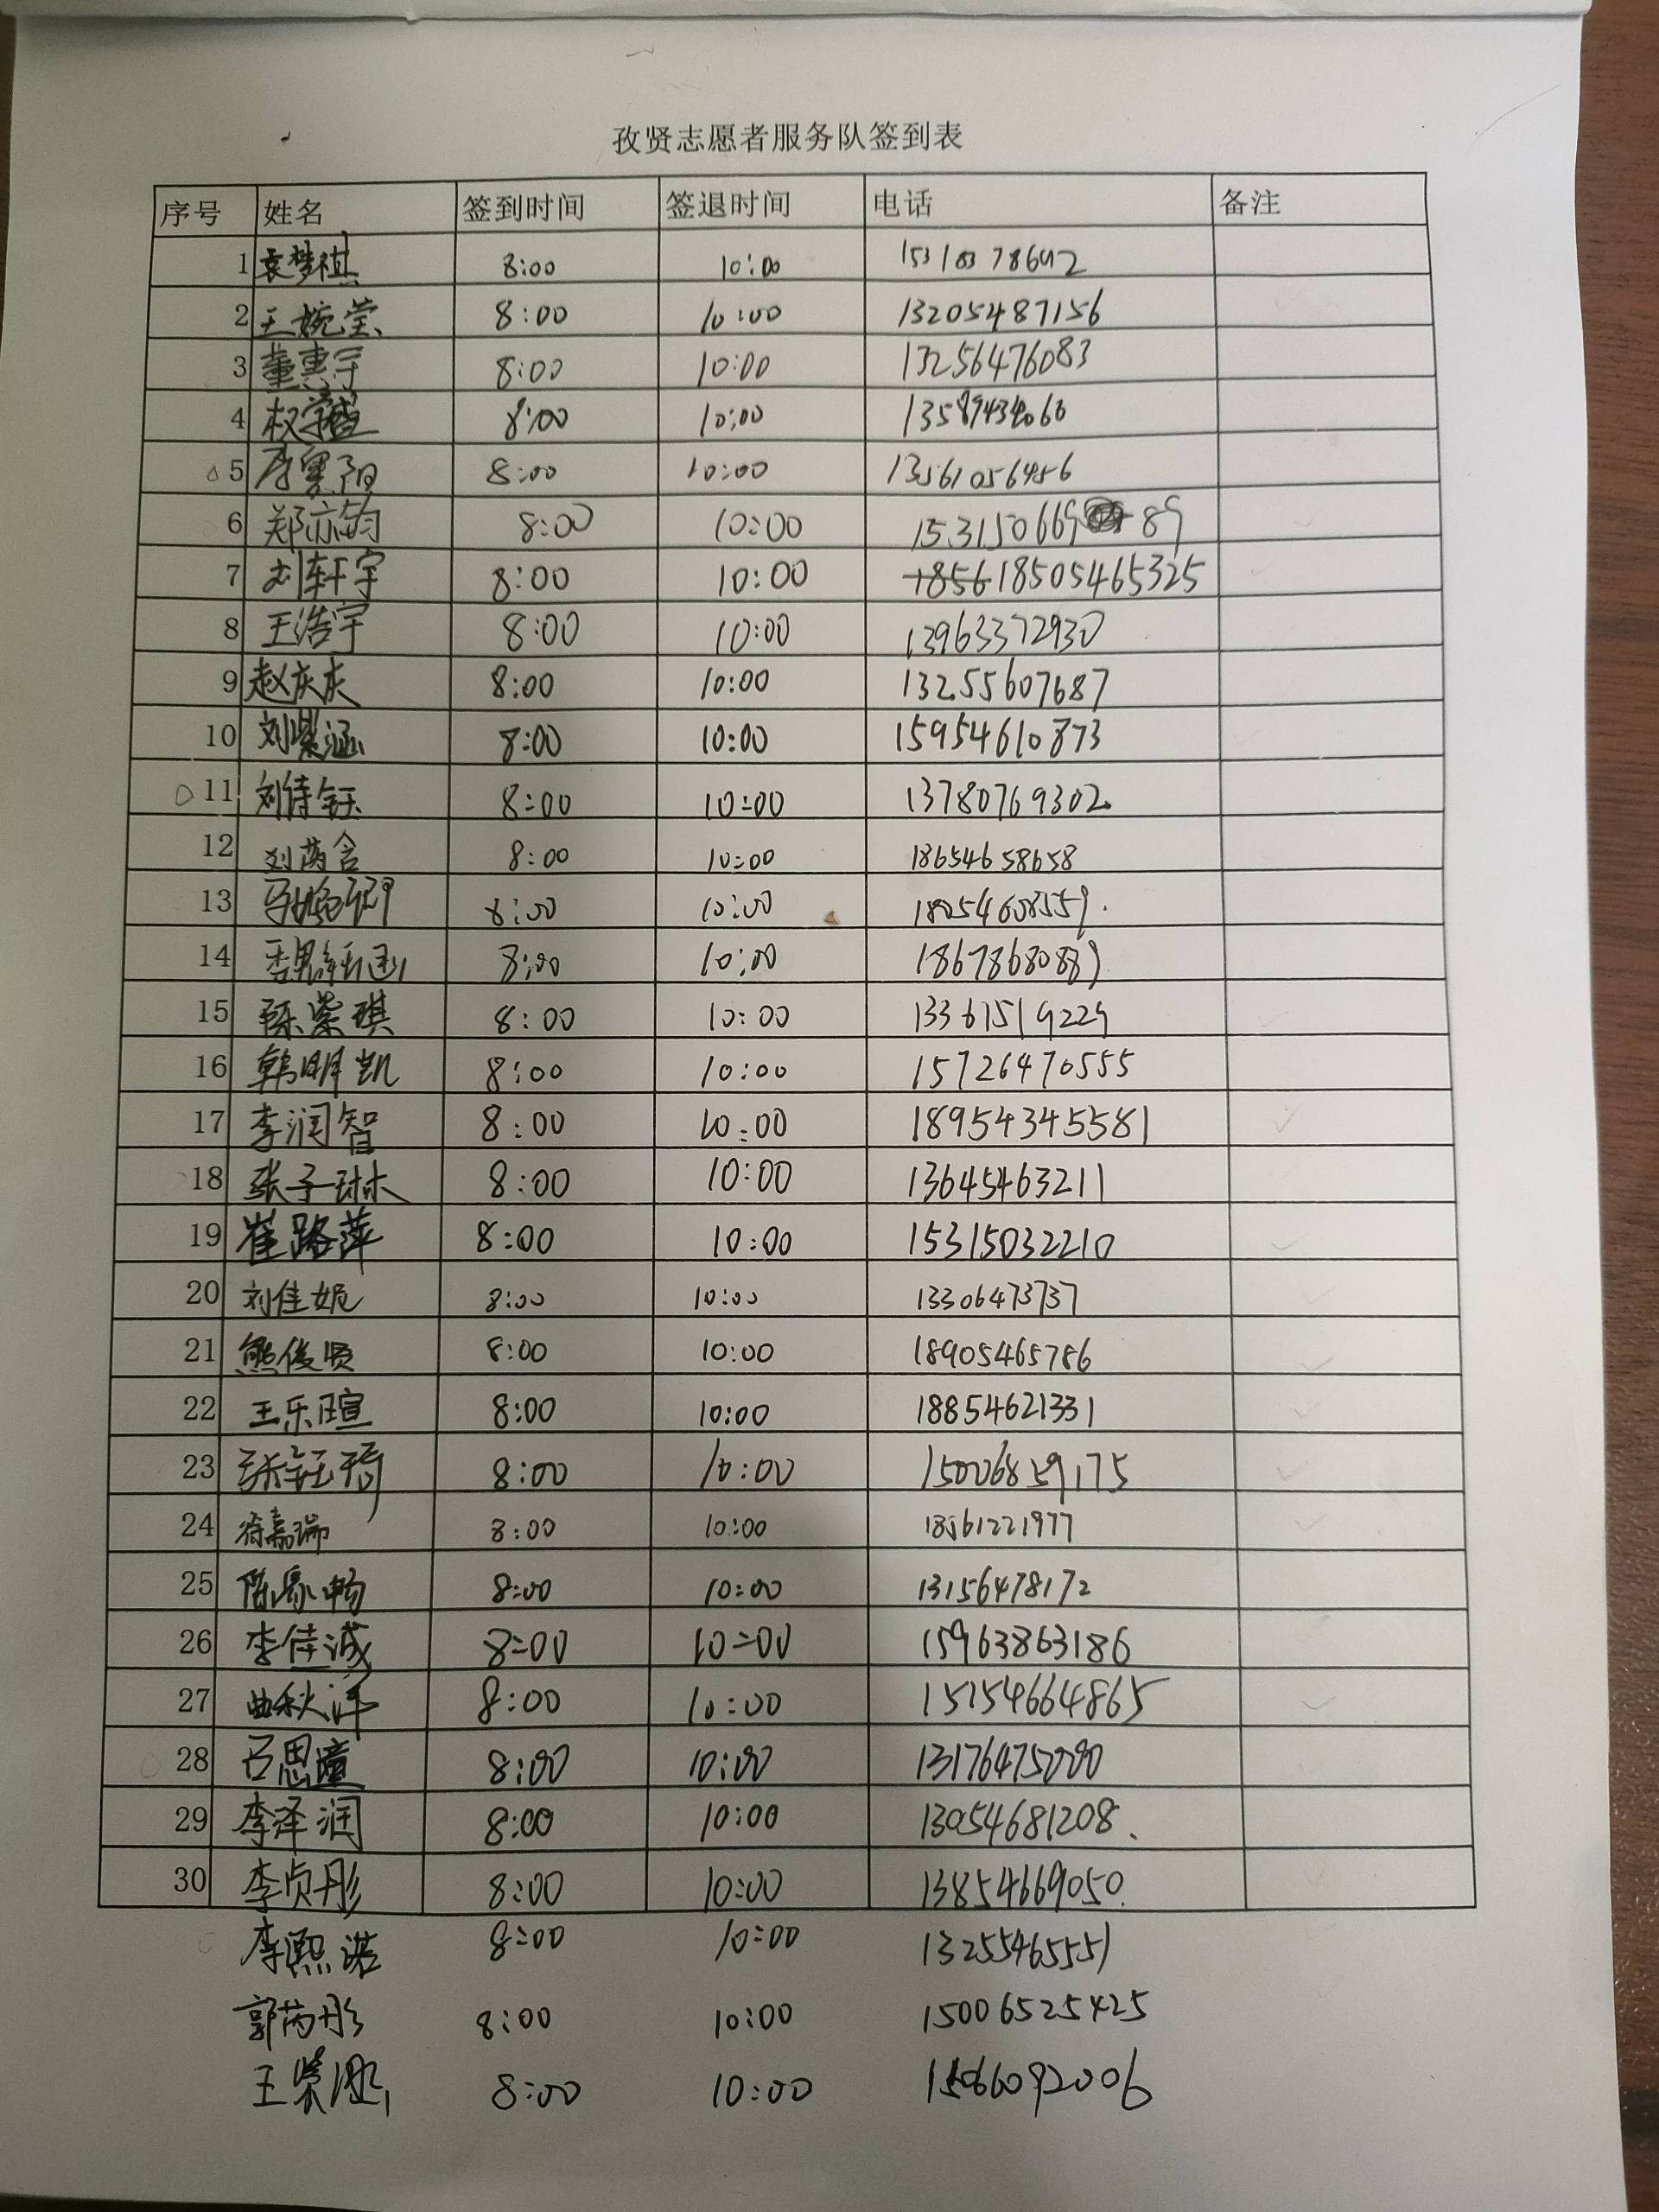 孜贤志愿者服务队签到表
序号 姓名 签到时间 签退时间 电话 备注
1 袁梦祺 8:00 10:00
2 王婉莹 8:00 10:00 13205487156
3 董惠宇 8:00 10:00 13256476083
4 8:00 10:00
5 8:00 10:00 13561056456
6 郑亦钧 8:00 10:00 15315066989
7 刘轩宇 8:00 10:00 18505465325
8 王浩宇 8:00 10:00 13963372930
9 赵庆庆 8:00 10:00 13255607687
10 刘紫涵 8:00 10:00 15954610873
11 刘诗钰 8:00 10:00 13780769302
12 刘芮含 8:00 10:00 18654658658
13 8:00 10:00 18054608559
14 8:00 10:00
15 陈紫琪 8:00 10:00 13361519229
16 韩明凯 8:00 10:00 15726470555
17 李润智 8:00 10:00 18954345581
18 张子琳 8:00 10:00 13645463211
19 崔路萍 8:00 10:00 15315032210
20 刘佳妮 8:00 10:00 13306473737
21 熊俊贤 8:00 10:00 18905465786
22 王乐暄 8:00 10:00 18854621331
23 张钰琦 8:00 10:00 15006859175
24 徐嘉瑞 8:00 10:00 18561221977
25 陈家畅 8:00 10:00 13156478172
26 李佳诚 8:00 10:00 15963863186
27 曲秋洋 8:00 10:00 15154664865
28 吕思瞳 8:00 10:00
29 李泽润 8:00 10:00 13054681208
30 李贞彤 8:00 10:00 13854669050
李熙诺 8:00 10:00 13255465551
郭芮彤 8:00 10:00 15006525425
王紫 8:00 10:00 15066092006